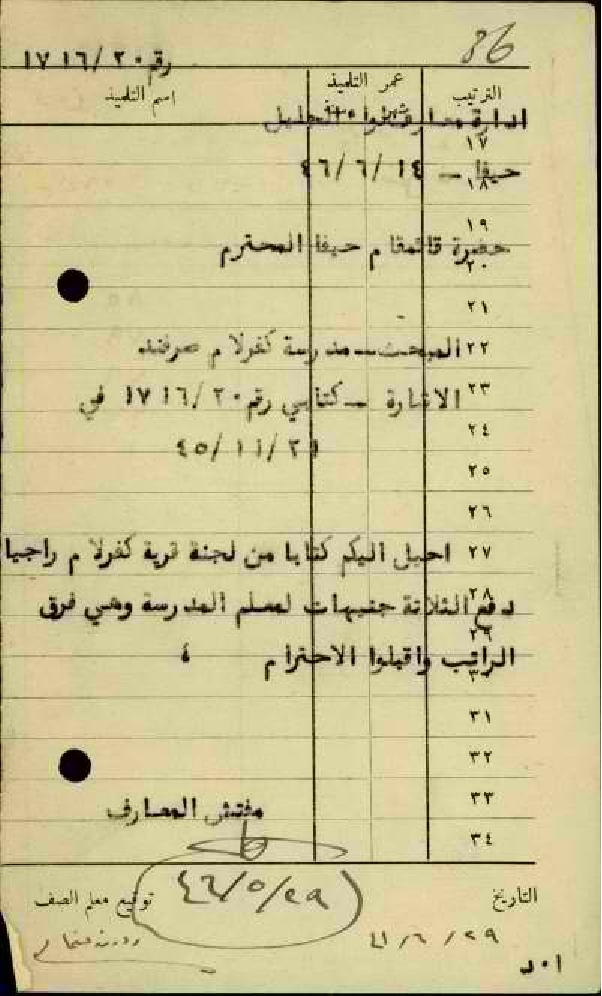 36
رقم ١٧١٦/٢٠
الترتيب عمر التلميذ اسم التلميذ
ادارة معارف لواء الجليل
١٧
حيفا - ٤٦/٦/١٤
١٨
١٩
حضرة قائمقام حيفا المحترم
٢٠
٢١
٢٢ المبحث - مدرسة كفرلام صرفند
٢٣ الاشارة - كتابي رقم ١٧١٦/٢٠ في
٢٤
٤٥/١١/٢٩
٢٥
٢٦
٢٧ احيل اليكم كتابا من لجنة قرية كفرلام راجيا
٢٨
دفع الثلاثة جنيهات لمعلم المدرسة وهي فرق
٢٩
الراتب واقبلوا الاحترام ،
٣٠
٣١
٣٢
٣٣
مفتش المعارف
٣٤
٤٦/٥/٢٩
التاريخ توقيع معلم الصف
٢٩/٦/
ا٠د